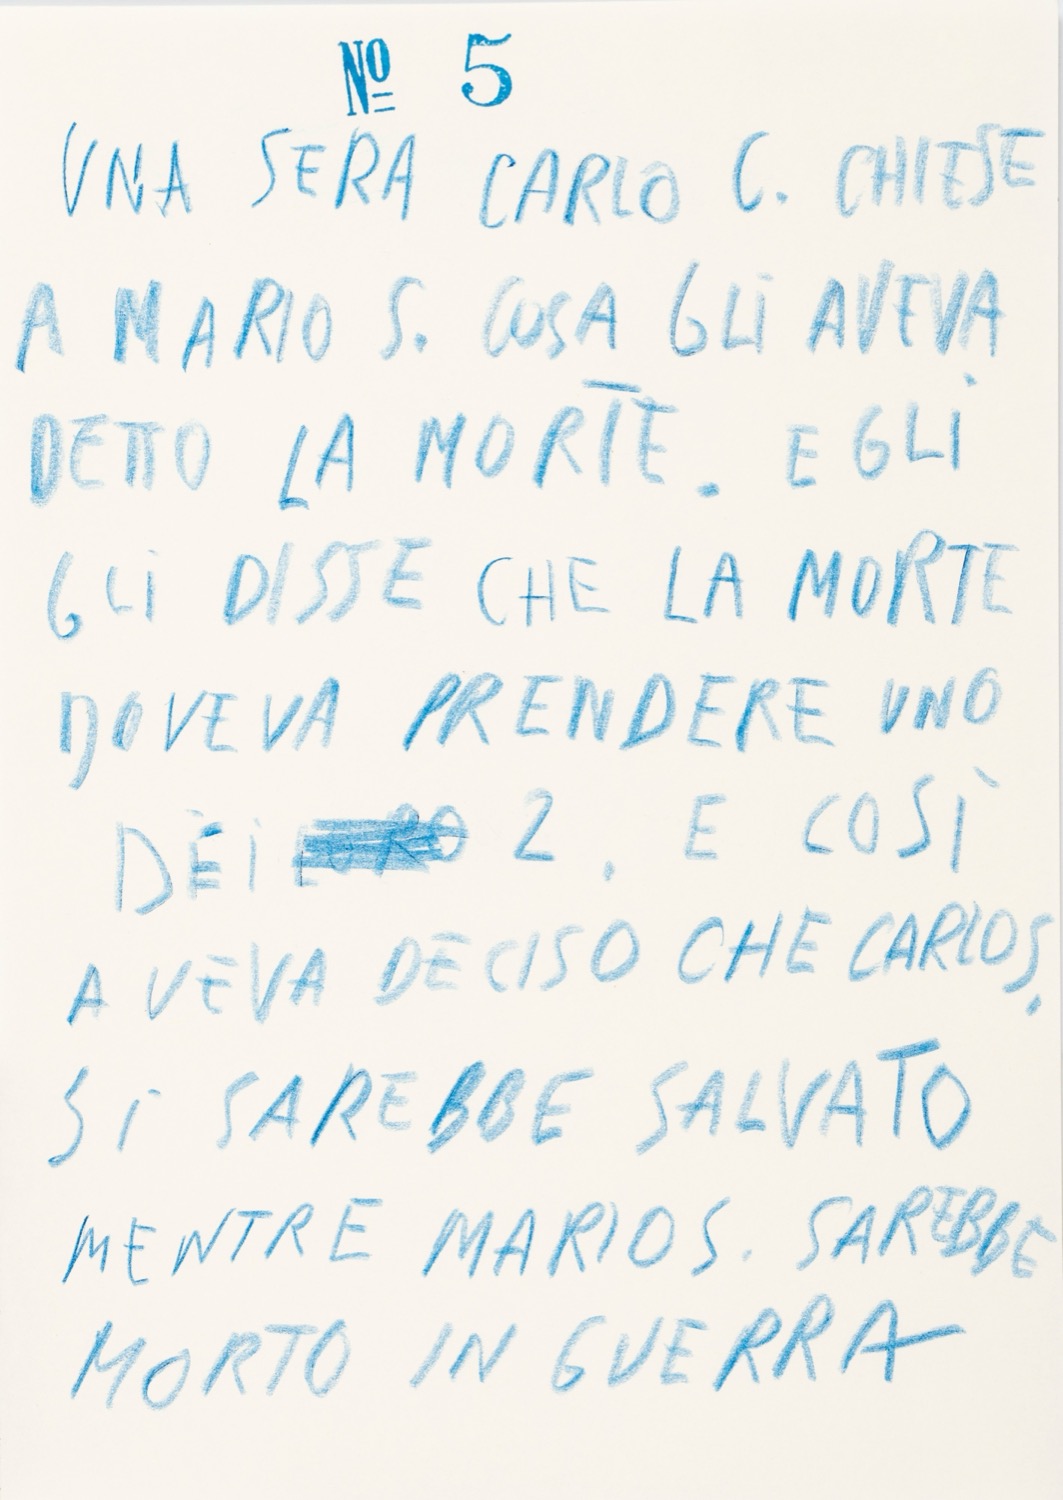 Nº 5
UNA SERA CARLO C. CHIESE
A MARIO S. COSA GLI AVEVA
DETTO LA MORTE. EGLI
GLI DISSE CHE LA MORTE
DOVEVA PRENDERE UNO
DEI 2. E COSÌ
AVEVA DECISO CHE CARLO S.
SI SAREBBE SALVATO
MENTRE MARIO S. SAREBBE
MORTO IN GUERRA